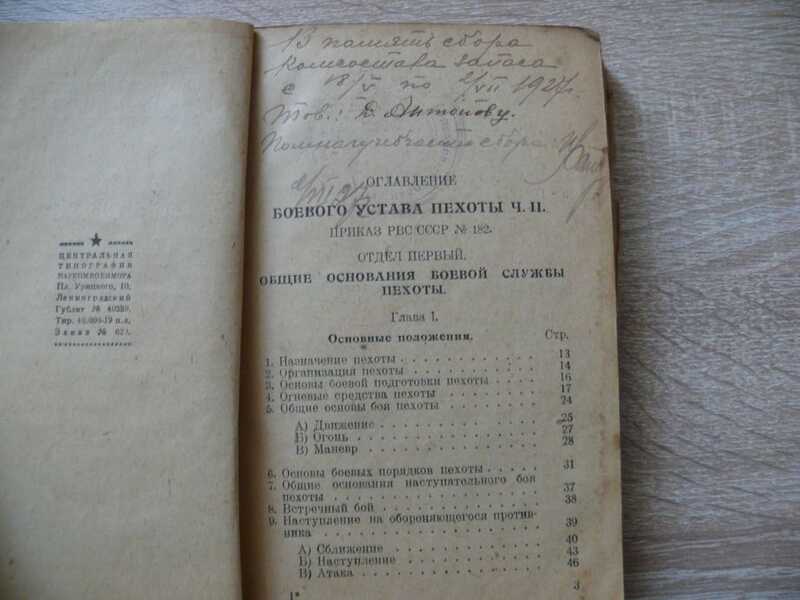 ЦЕНТРАЛЬНАЯ
ТИПОГРАФИЯ
НАРКОМВОЕНМОРА
Пл. Урицкого, 10.
Ленинградский
Гублит № 40399.
Тир. 40.000-19 п.л.
Заказ № 62
В память сбора
комсостава запаса
с 18/V по 2/VII 1927 г.
Тов.: Д. Антонову.
сбора
ОГЛАВЛЕНИЕ
БОЕВОГО УСТАВА ПЕХОТЫ Ч. II.
ПРИКАЗ РВС СССР № 182.
ОТДЕЛ ПЕРВЫЙ.
ОБЩИЕ ОСНОВАНИЯ БОЕВОЙ СЛУЖБЫ
ПЕХОТЫ.
Глава 1.
Основные положения. Стр.
1. Назначение пехоты 13
2. Организация пехоты 14
3. Основы боевой подготовки пехоты 16
4. Огневые средства пехоты 17
5. Общие основы боя пехоты 24
А) Движение 25
Б) Огонь 27
В) Маневр 28
6. Основы боевых порядков пехоты 31
7. Общие основания наступательного боя
пехоты 37
8. Встречный бой 38
9. Наступление на обороняющегося против-
ника 39
А) Сближение 40
Б) Наступление 43
В) Атака 46
1*
3